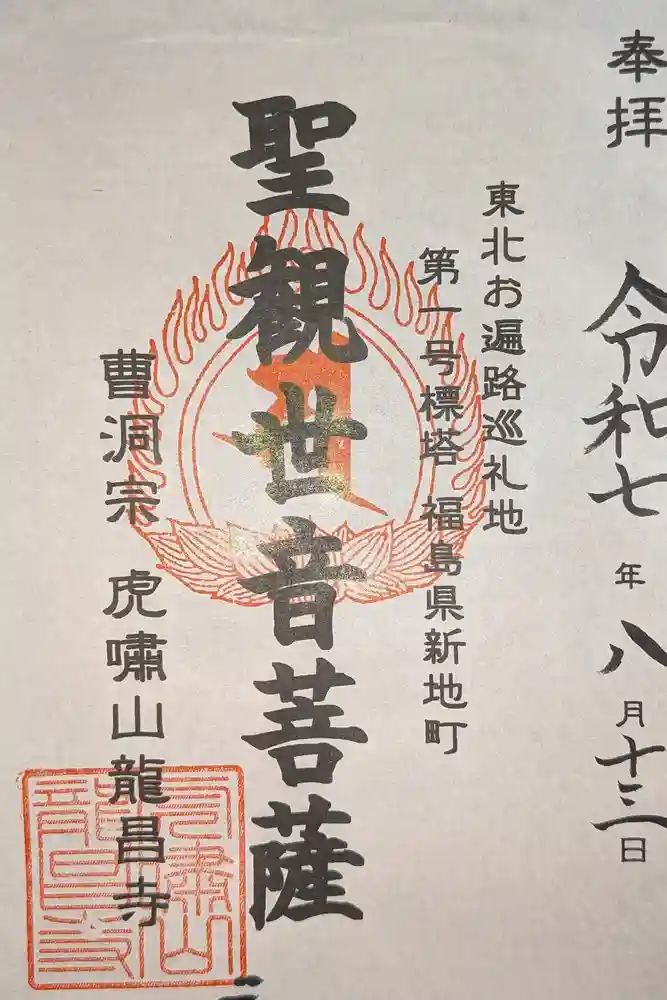 奉拝
令和七年八月十三日
東北お遍路巡礼地
第一号標塔 福島県新地町
聖観世音菩薩
曹洞宗 虎嘯山龍昌寺